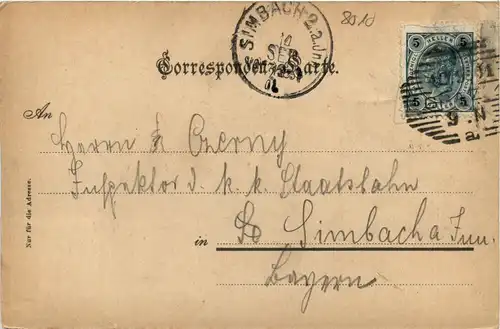 8010
SIMBACH 2. a. Inn
10
SEP
Correspondenz-Karte.
5 5
5 5
9. N
a
An
Herrn Czerny
Inspektor d. k. k. Staatsbahn
in Simbach a Inn.
Bayern
Nur für die Adresse.